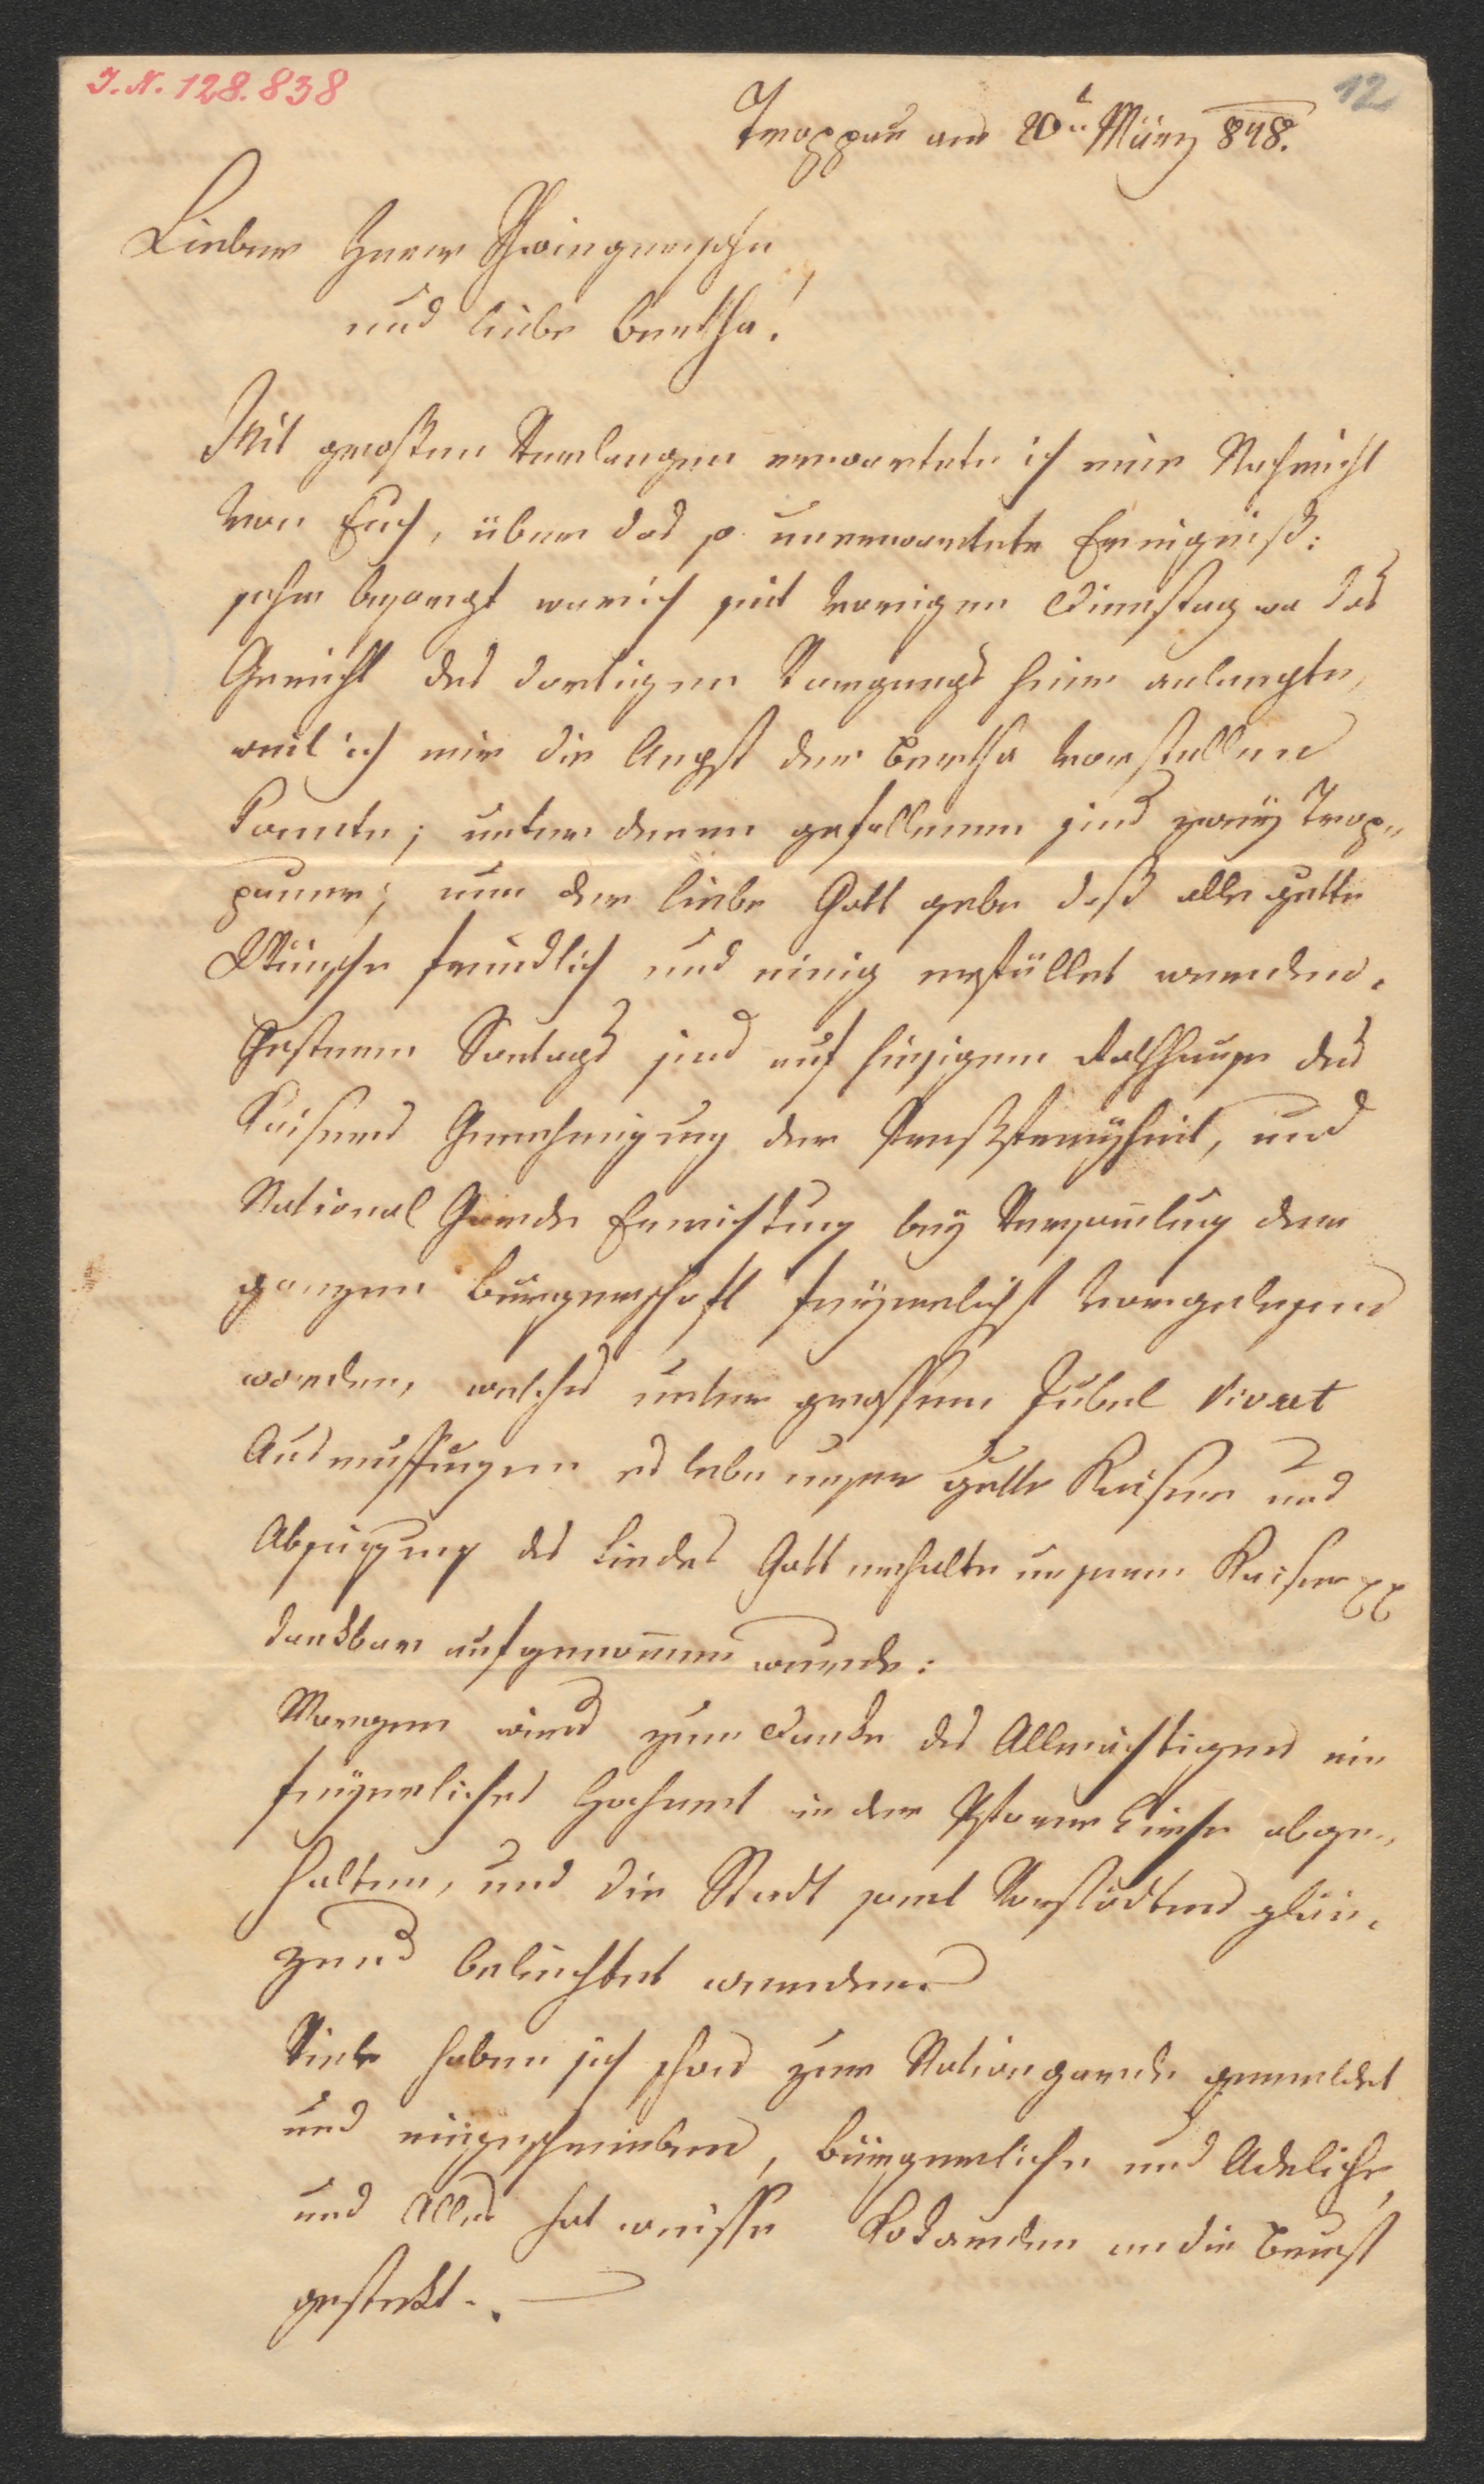 J. N. 128.838
12
Troppau am 20t März 848.
Lieber Herr Schwiegersohn
und liebe Bertha!
Mit großem Verlangen erwartete ich eine Nachricht
von Euch, über das so unerwartete Ereigniß:
sehr besorgt war ich seit vorigen Dienstag wo das
Gerücht des dortigen Vorgangs hier anlangte,
weil ich mir die Angst der Bertha vorstellen
konnte; unter denen gefallenen sind zweÿ Trop„
pauer; nun der liebe Gott gebe daß alle gutte
Wünsche friedlich und einig erfüllet werden.
Gestern Sontags sind auf hiesigem Rathhause des
Kaisers Genehmigung der Preßfreÿheit, und
National Garde Errichtung beÿ Versamlung der
ganzen Bürgerschaft feÿerlichst vorgelesen
worden, welches unter grossem Jubel Vivat
Ausruffungen es lebe unser gutte Kaiser und
Absingung des Liedes Gott erhalte unseren Kaiser
dankbar aufgenom̄en wurde:
Morgen wird zum Danke des Allmächtigen ein
feÿerliches Hochamt in der Pfarr Kirche abge„
halten, und die Stadt samt Vorstädten glän„
zend beleuchtet werden.
Viele haben sich schon zur Nationgarde gemeldet
und eingeschrieben, bürgerliche und Adeliche,
und Alles hat weisse Kokarden an die Brust
gestekt.